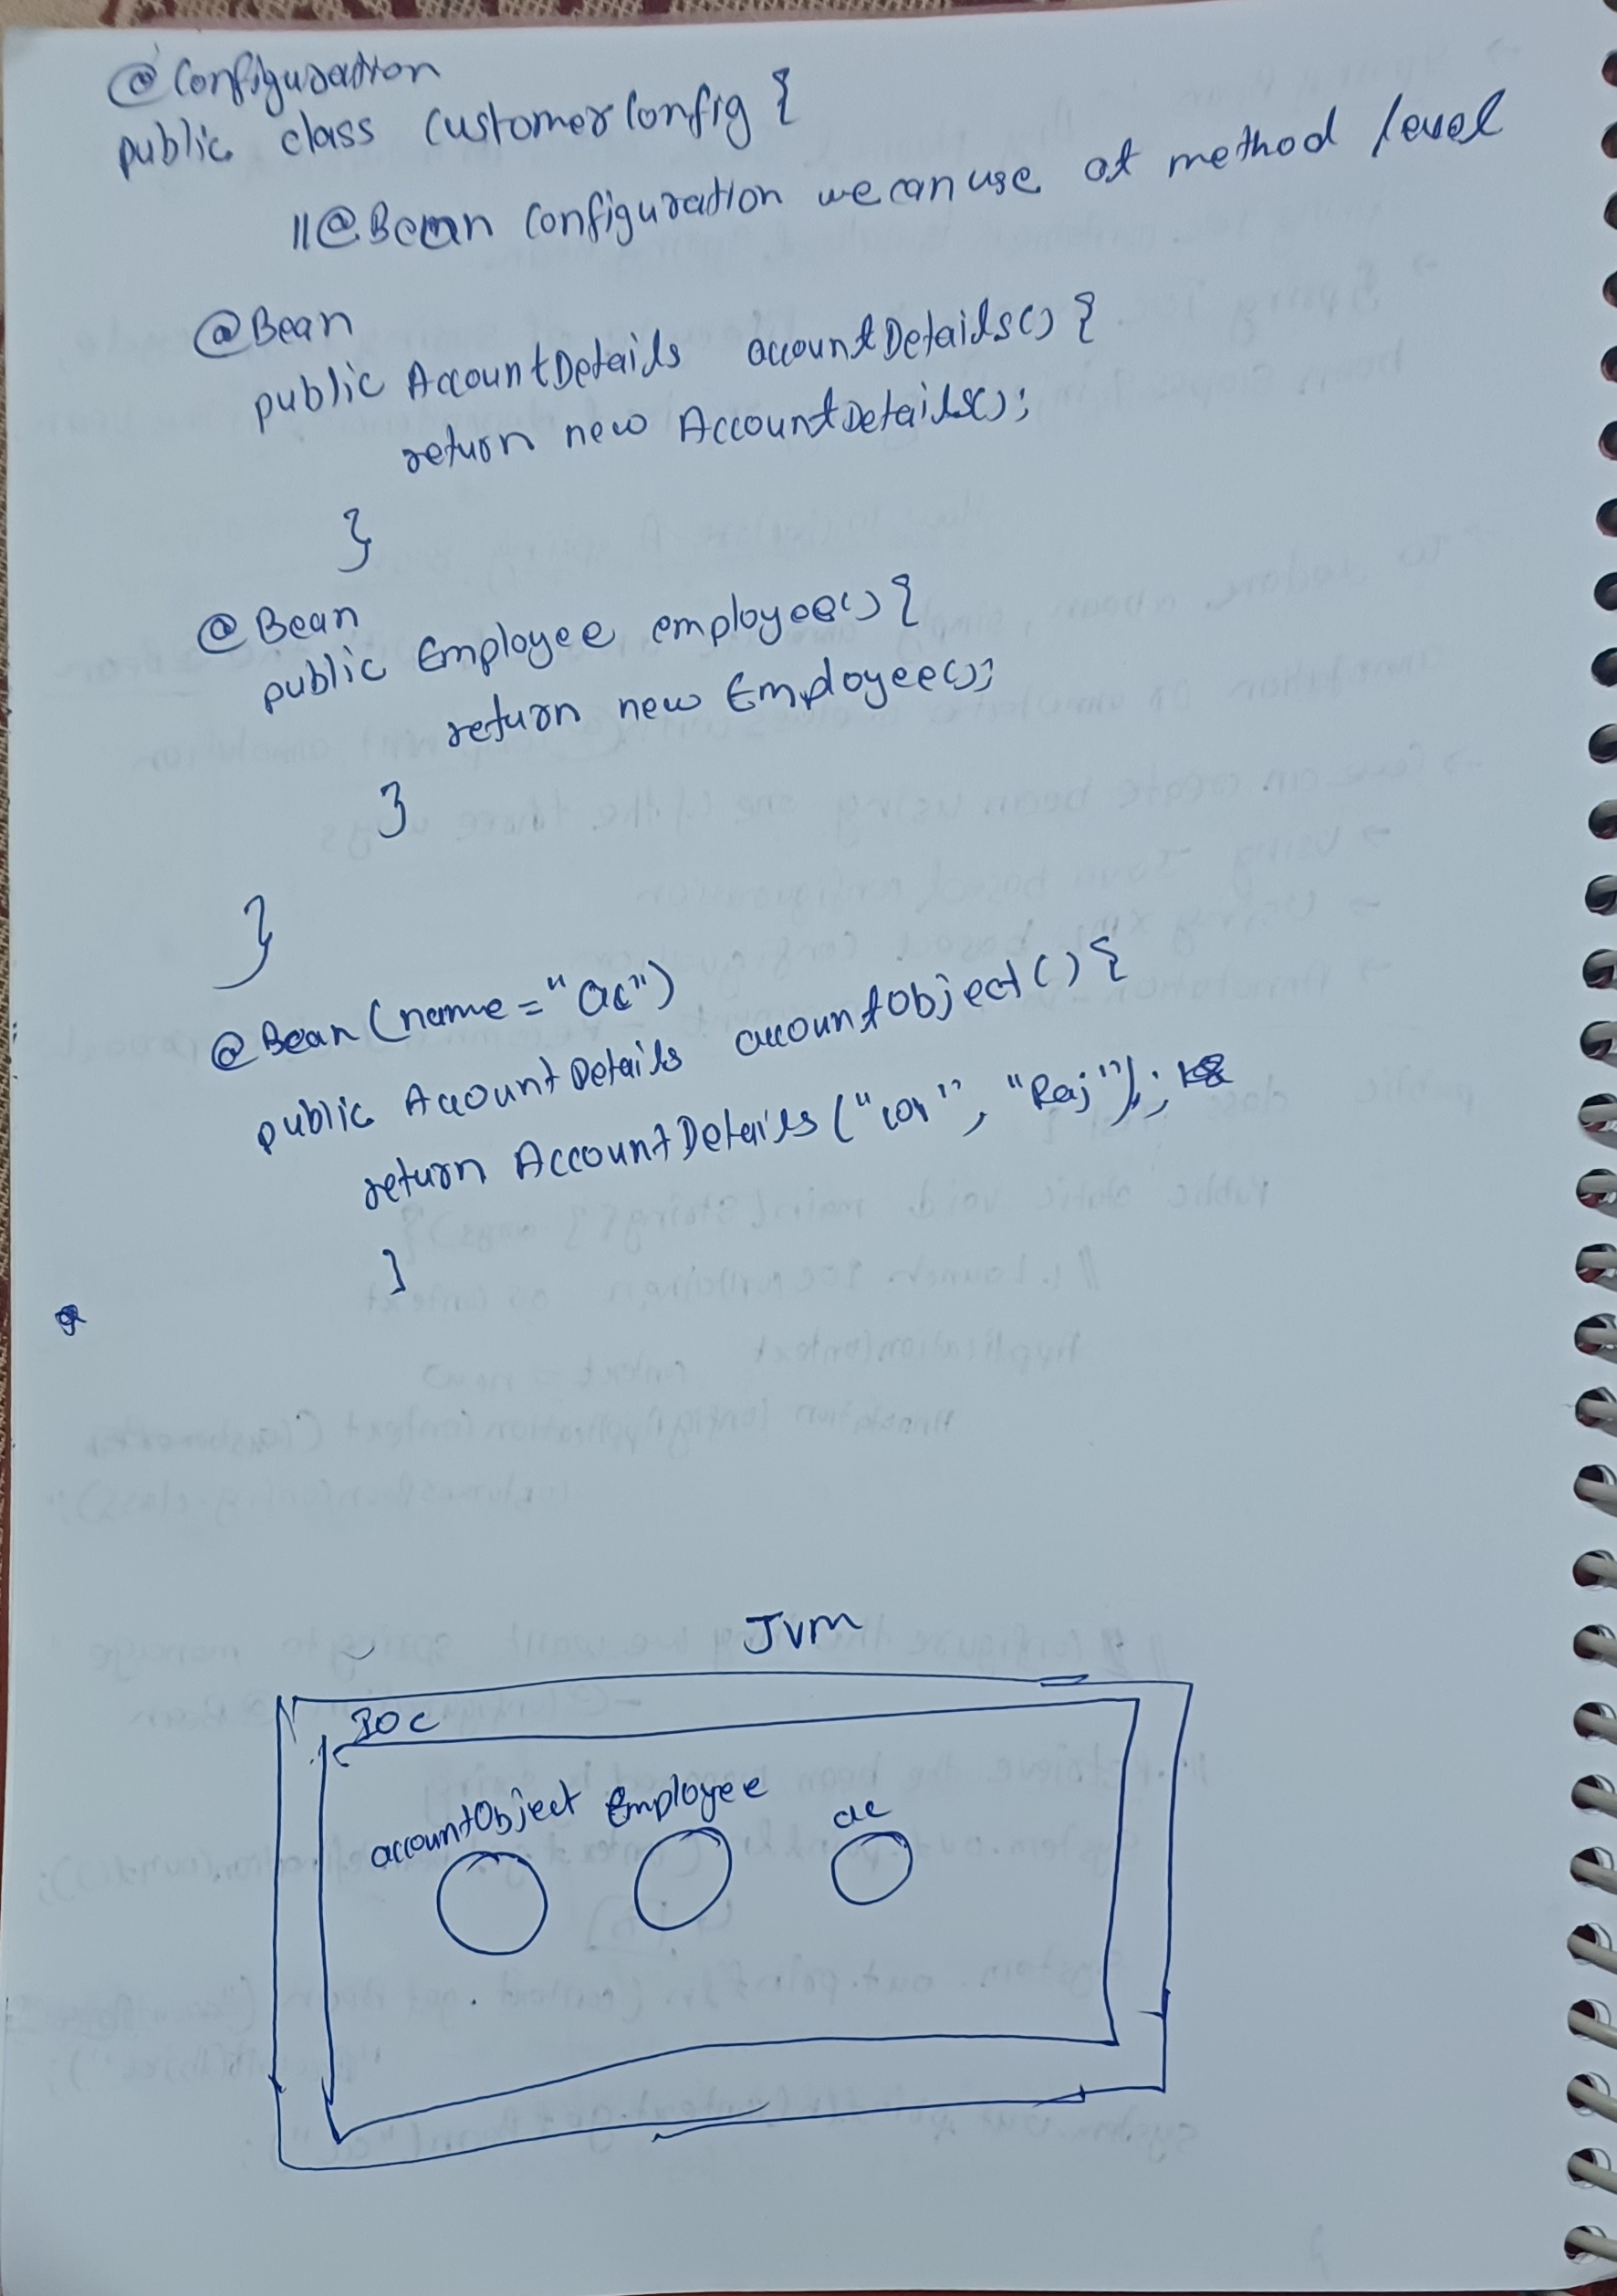 @Configuration
public class CustomerConfig {
//@Bean Configuration we can use at method level
@Bean
public AccountDetails accountDetails() {
return new AccountDetails();
}
@Bean
public Employee employee() {
return new Employee();
}
}
@Bean (name = "ac")
public AccountDetails accountObject() {
return AccountDetails ("101", "Raj");
}
JVM
IOC
accountObject Employee ac